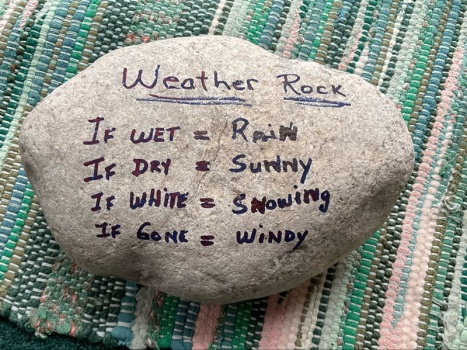 Weather Rock
If wet = Rain
If Dry = Sunny
If White = Snowing
If Gone = Windy